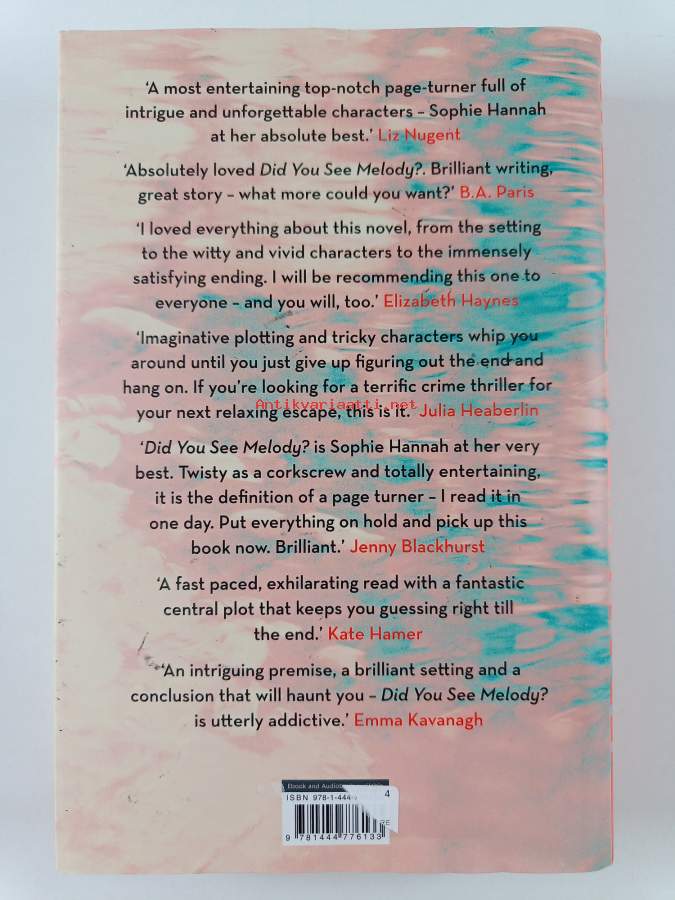 ‘A most entertaining top-notch page-turner full of
intrigue and unforgettable characters – Sophie Hannah
at her absolute best.’ Liz Nugent
‘Absolutely loved Did You See Melody?. Brilliant writing,
great story – what more could you want?’ B.A. Paris
‘I loved everything about this novel, from the setting
to the witty and vivid characters to the immensely
satisfying ending. I will be recommending this one to
everyone – and you will, too.’ Elizabeth Haynes
‘Imaginative plotting and tricky characters whip you
around until you just give up figuring out the end and
hang on. If you’re looking for a terrific crime thriller for
your next relaxing escape, this is it.’ Julia Heaberlin
Antikvariaatti.net
‘Did You See Melody? is Sophie Hannah at her very
best. Twisty as a corkscrew and totally entertaining,
it is the definition of a page turner – I read it in
one day. Put everything on hold and pick up this
book now. Brilliant.’ Jenny Blackhurst
‘A fast paced, exhilarating read with a fantastic
central plot that keeps you guessing right till
the end.’ Kate Hamer
‘An intriguing premise, a brilliant setting and a
conclusion that will haunt you – Did You See Melody?
is utterly addictive.’ Emma Kavanagh
Ebook and
ISBN 978-1-444- 4
9 781444 776133